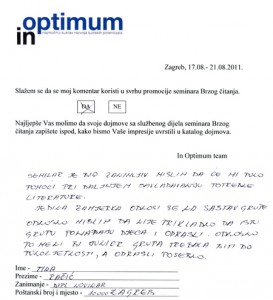 in optimum
Zagreb, 17.08.- 21.08.2011.
Slažem se da se moj komentar koristi u svrhu promocije seminara Brzog
čitanja.
DA NE
Najljepše Vas molimo da svoje dojmove sa službenog dijela seminara Brzog
čitanja zapišete ispod, kako bismo Vaše impresije uvrstili u katalog dojmova.
In Optimum team
SEMINAR JE BIO ZANIMLJIV MISLIM DA ĆE MI PUNO
POMOĆI PRI DALJNJEM SAVLADAVANJU POTREBNE
LITERATURE.
JEDINA ZAMJERKA ODNOSI SE NA SASTAV GRUPE
ODNOSNO MISLIM DA NIJE PRIKLADNO DA ISTU
GRUPU POHAĐAJU DJECA I ODRASLI. ODNOSNO
PO MENI BI OKVIR GRUPA TREBAO BITI DO
PUNOLJETNOSTI, A ODRASLI POSEBNO.
Ime – TINA
Prezime –
Zanimanje – DIPL. NOVINAR
Poštanski broj i mjesto – 10000 ZAGREB